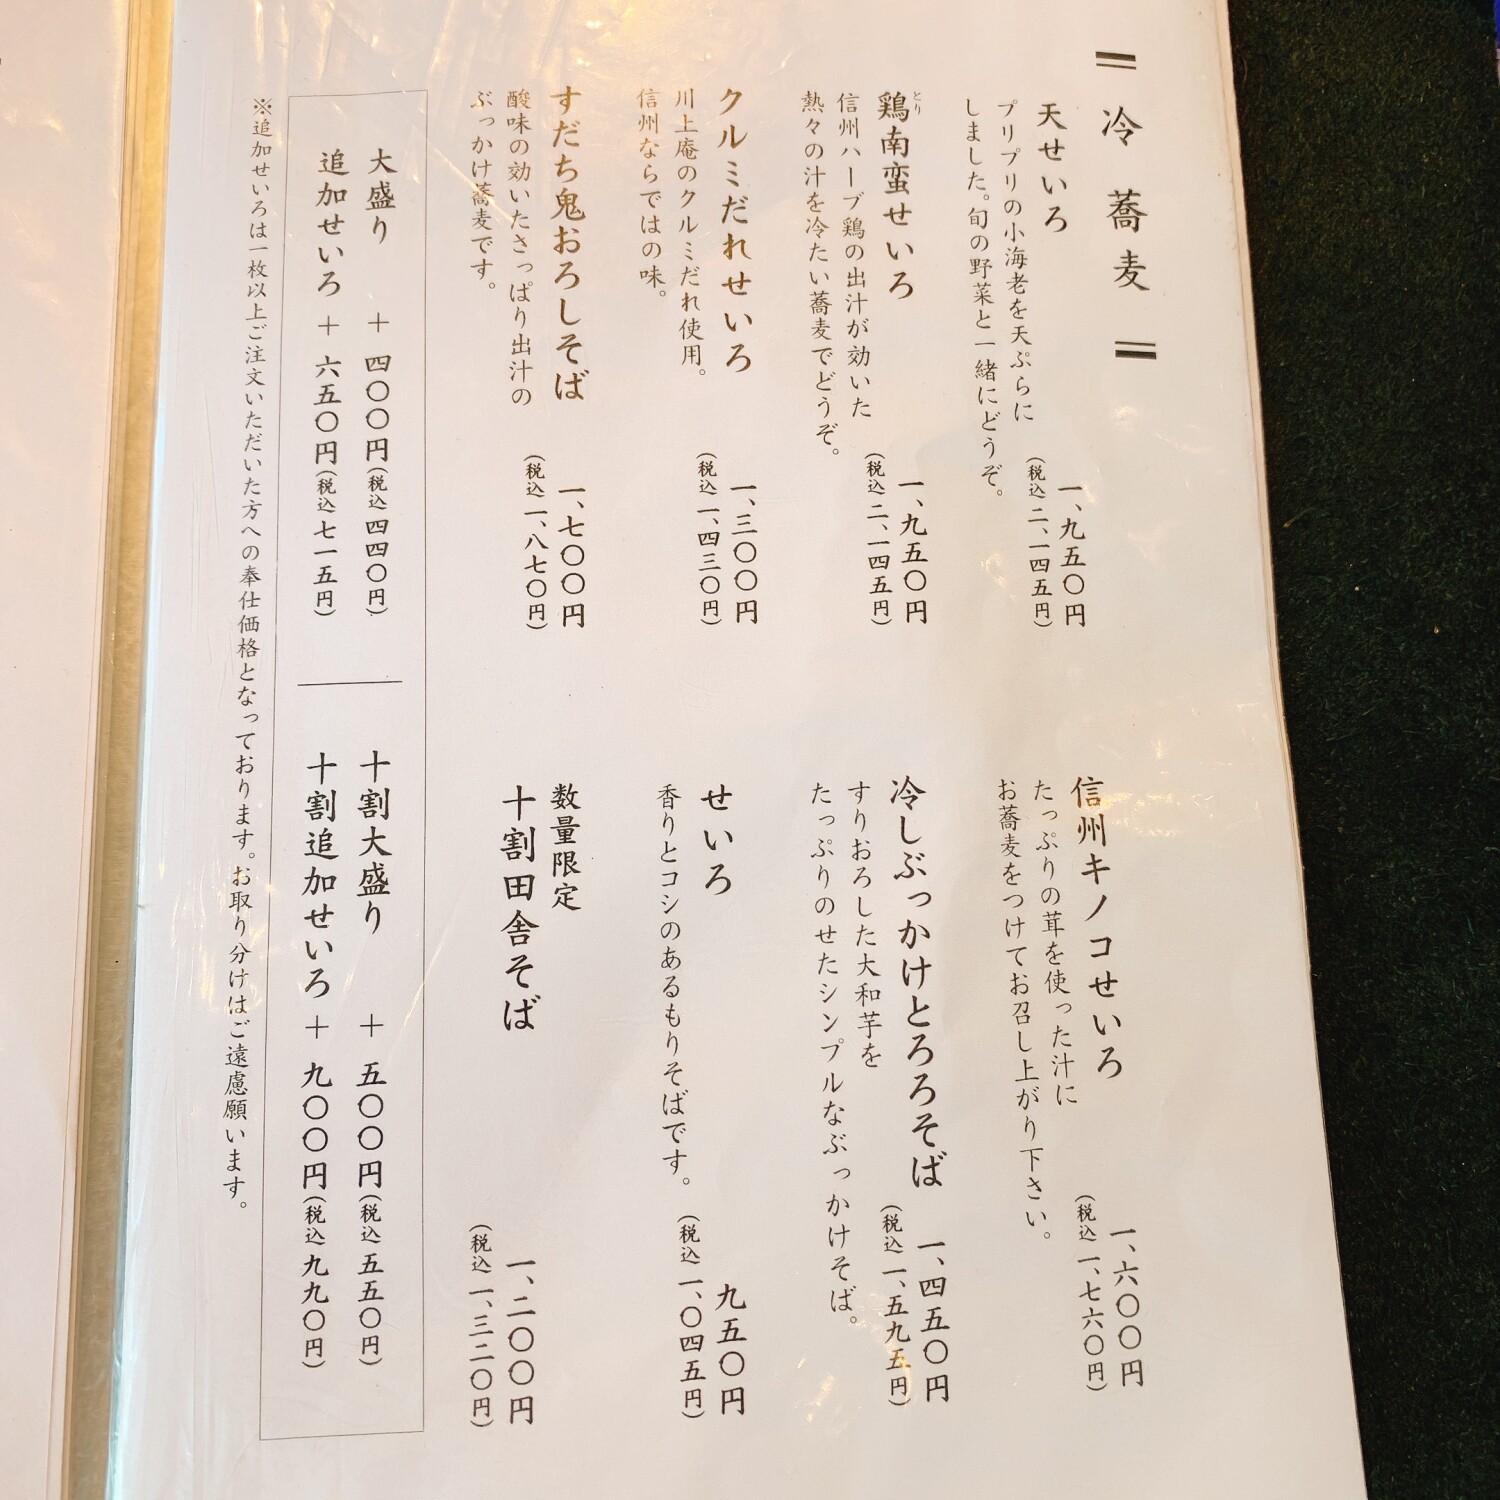 冷蕎麦
天せいろ
プリプリの小海老を天ぷらに
しました。旬の野菜と一緒にどうぞ。
一、九五〇円
(税込 二、一四五円)
鶏南蛮せいろ
とり
信州ハーブ鶏の出汁が効いた
熱々の汁を冷たい蕎麦でどうぞ。
一、九五〇円
(税込 二、一四五円)
クルミだれせいろ
川上庵のクルミだれ使用。
信州ならではの味。
一、三〇〇円
(税込 一、四三〇円)
すだち鬼おろしそば
酸味の効いたさっぱり出汁の
ぶっかけ蕎麦です。
一、七〇〇円
(税込 一、八七〇円)
信州キノコせいろ
たっぷりの茸を使った汁に
お蕎麦をつけてお召し上がり下さい。
一、六〇〇円
(税込 一、七六〇円)
冷しぶっかけとろろそば
すりおろした大和芋を
たっぷりのせたシンプルなぶっかけそば。
一、四五〇円
(税込 一、五九五円)
せいろ
香りとコシのあるもりそばです。
九五〇円
(税込 一、〇四五円)
数量限定
十割田舎そば
一、二〇〇円
(税込 一、三二〇円)
大盛り ＋ 四〇〇円(税込 四四〇円)
追加せいろ ＋ 六五〇円(税込 七一五円)
十割大盛り ＋ 五〇〇円(税込 五五〇円)
十割追加せいろ ＋ 九〇〇円(税込 九九〇円)
※追加せいろは一枚以上ご注文いただいた方への奉仕価格となっております。お取り分けはご遠慮願います。